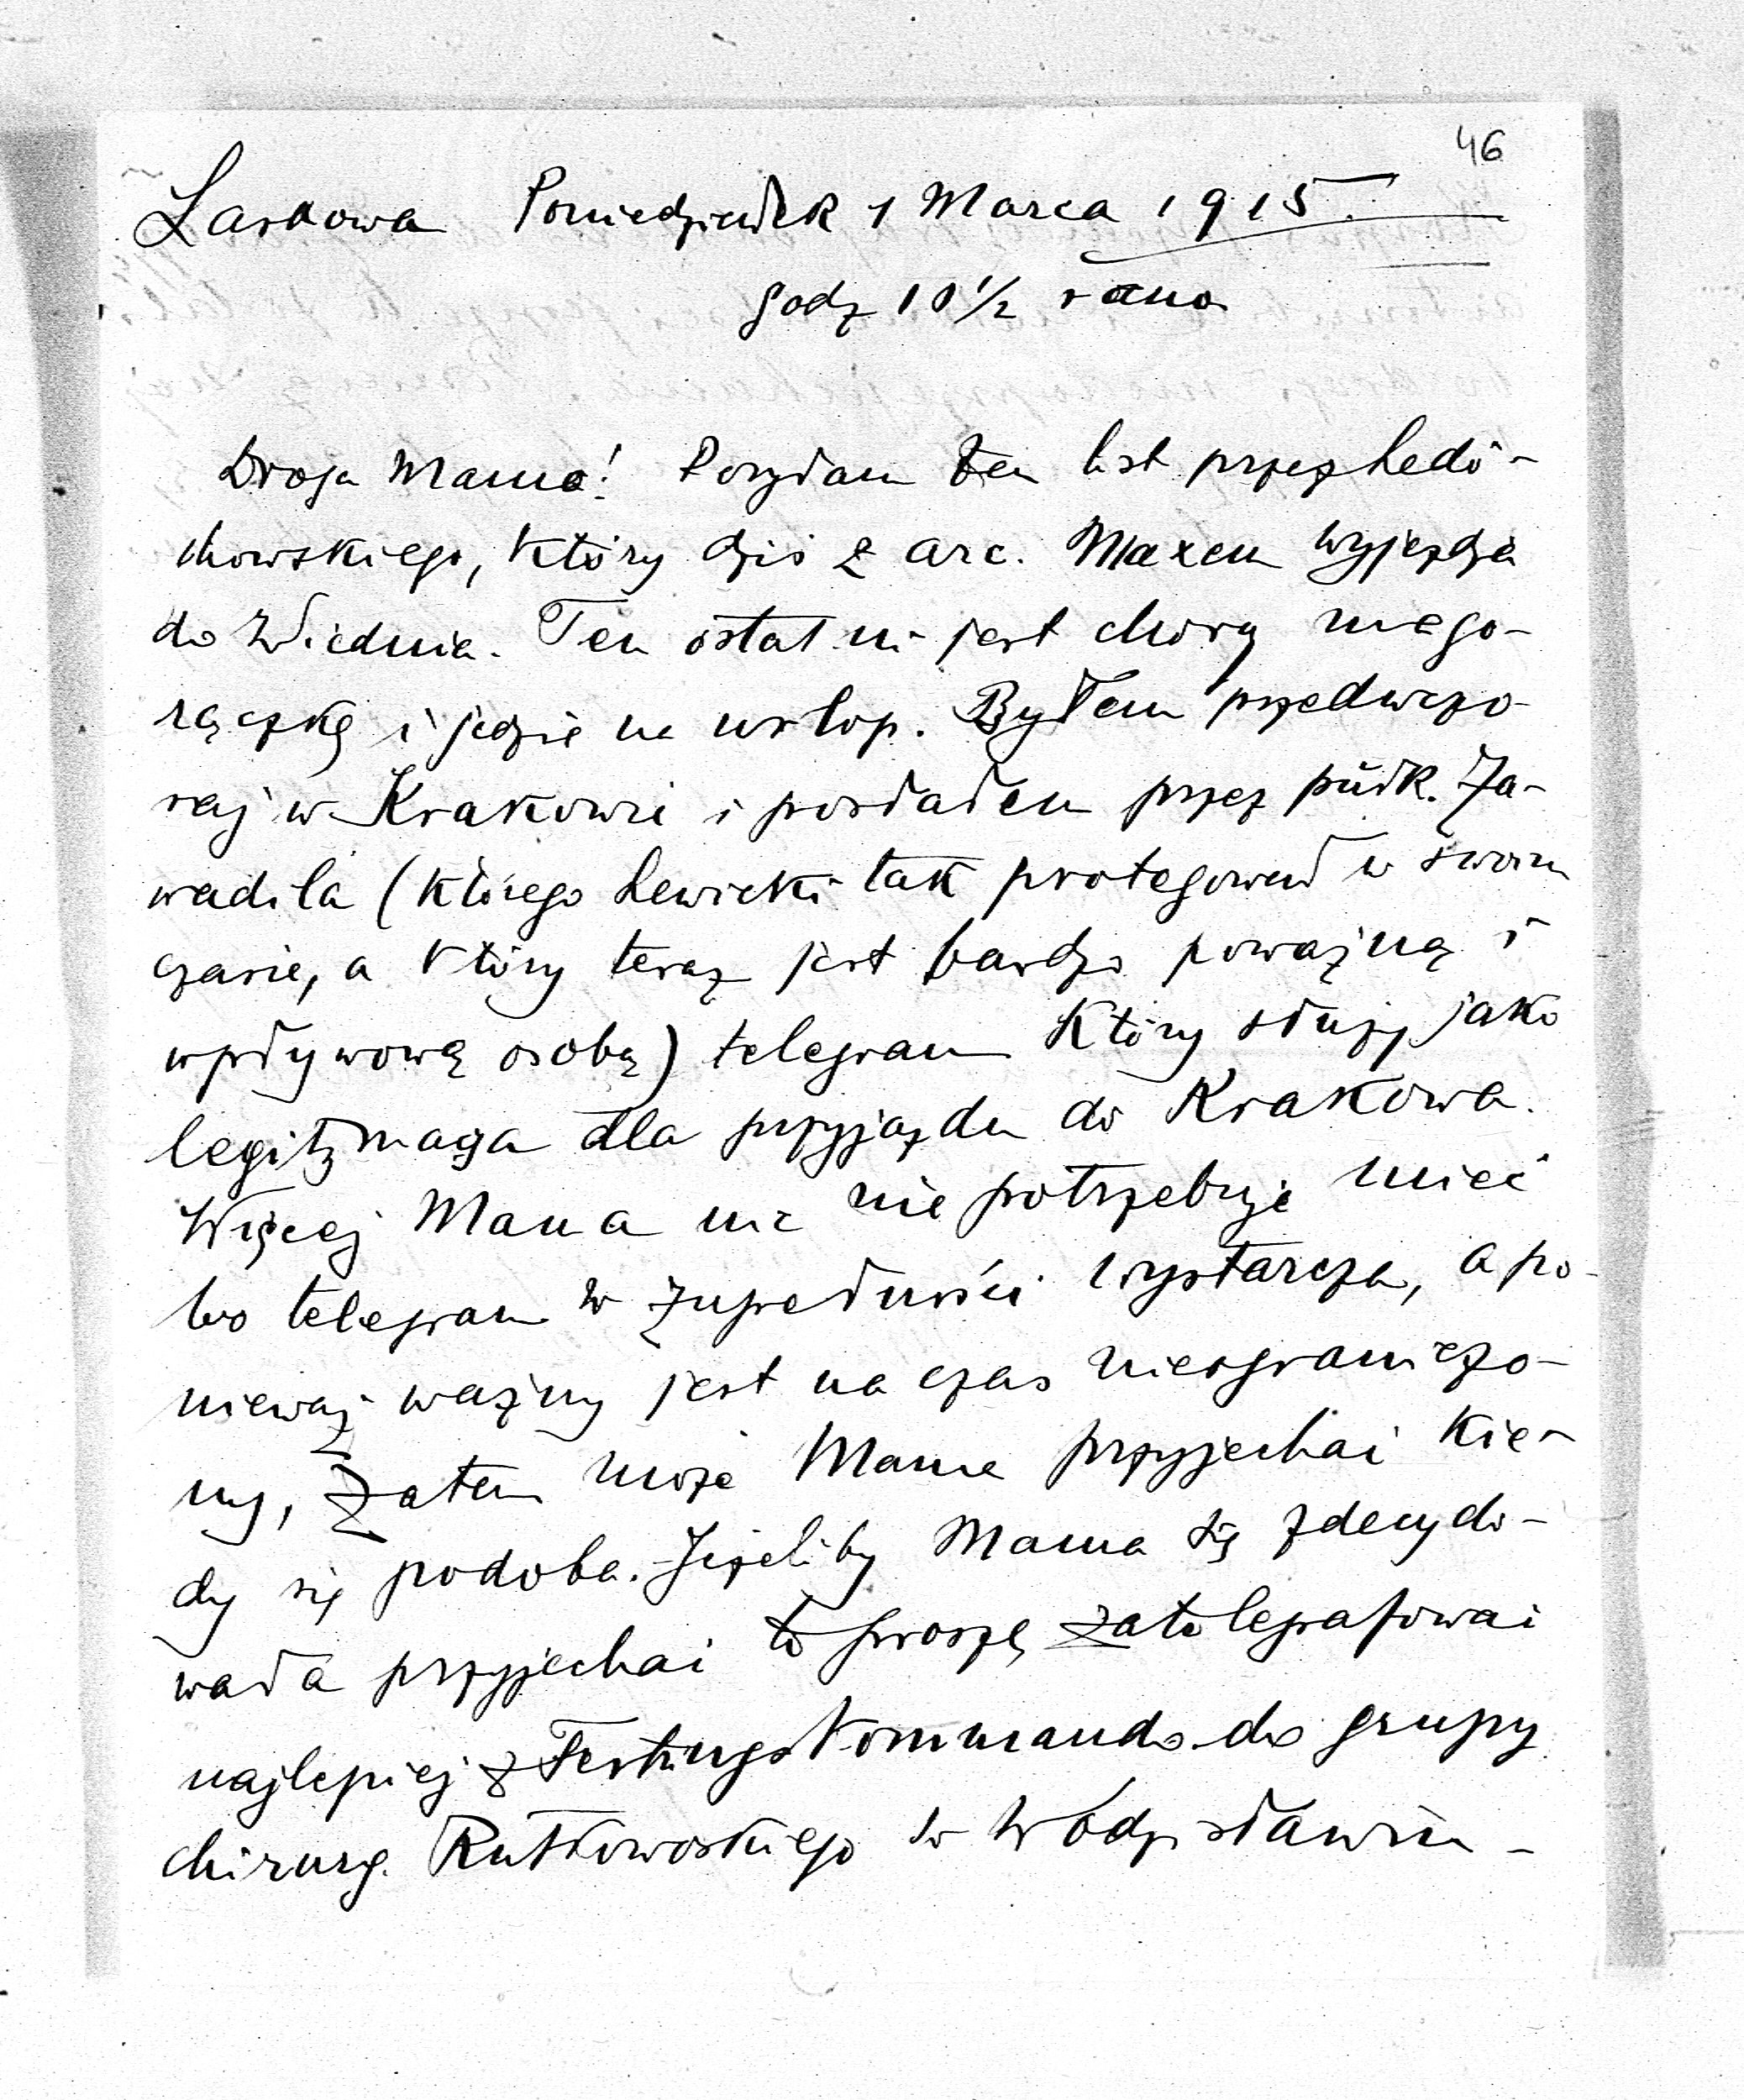 46
Laskowa Poniedziałek 1 Marca 1915.
godz 10 1/2 rano
Droga Mamo! Posyłam ten list przez Ledó-
chowskiego, który dziś z arc. Maxem wyjeżdża
do Wiednia. Ten ostatni jest chory na go-
rączkę i jedzie na urlop. Byłem przedwczo-
raj w Krakowie i posłałem przez półk. Za-
wadila (którego Lewicki tak protegował w swoim
czasie, a który teraz jest bardzo poważną i
wpływową osobą) telegram który służy jako
legitymacya dla przyjazdu do Krakowa.
Więcej Mama nic nie potrzebuje mieć
bo telegram w zupełności wystarcza, a po-
nieważ ważny jest na czas nieograniczo-
ny, zatem może Mama przyjechać kie-
dy się podoba. Jeżeliby Mama się zdecydo-
wała przyjechać to proszę zatelegrafować
najlepiej z Festungskommando do grupy
chirurg. Rutkowskiego w Wodzisławiu -